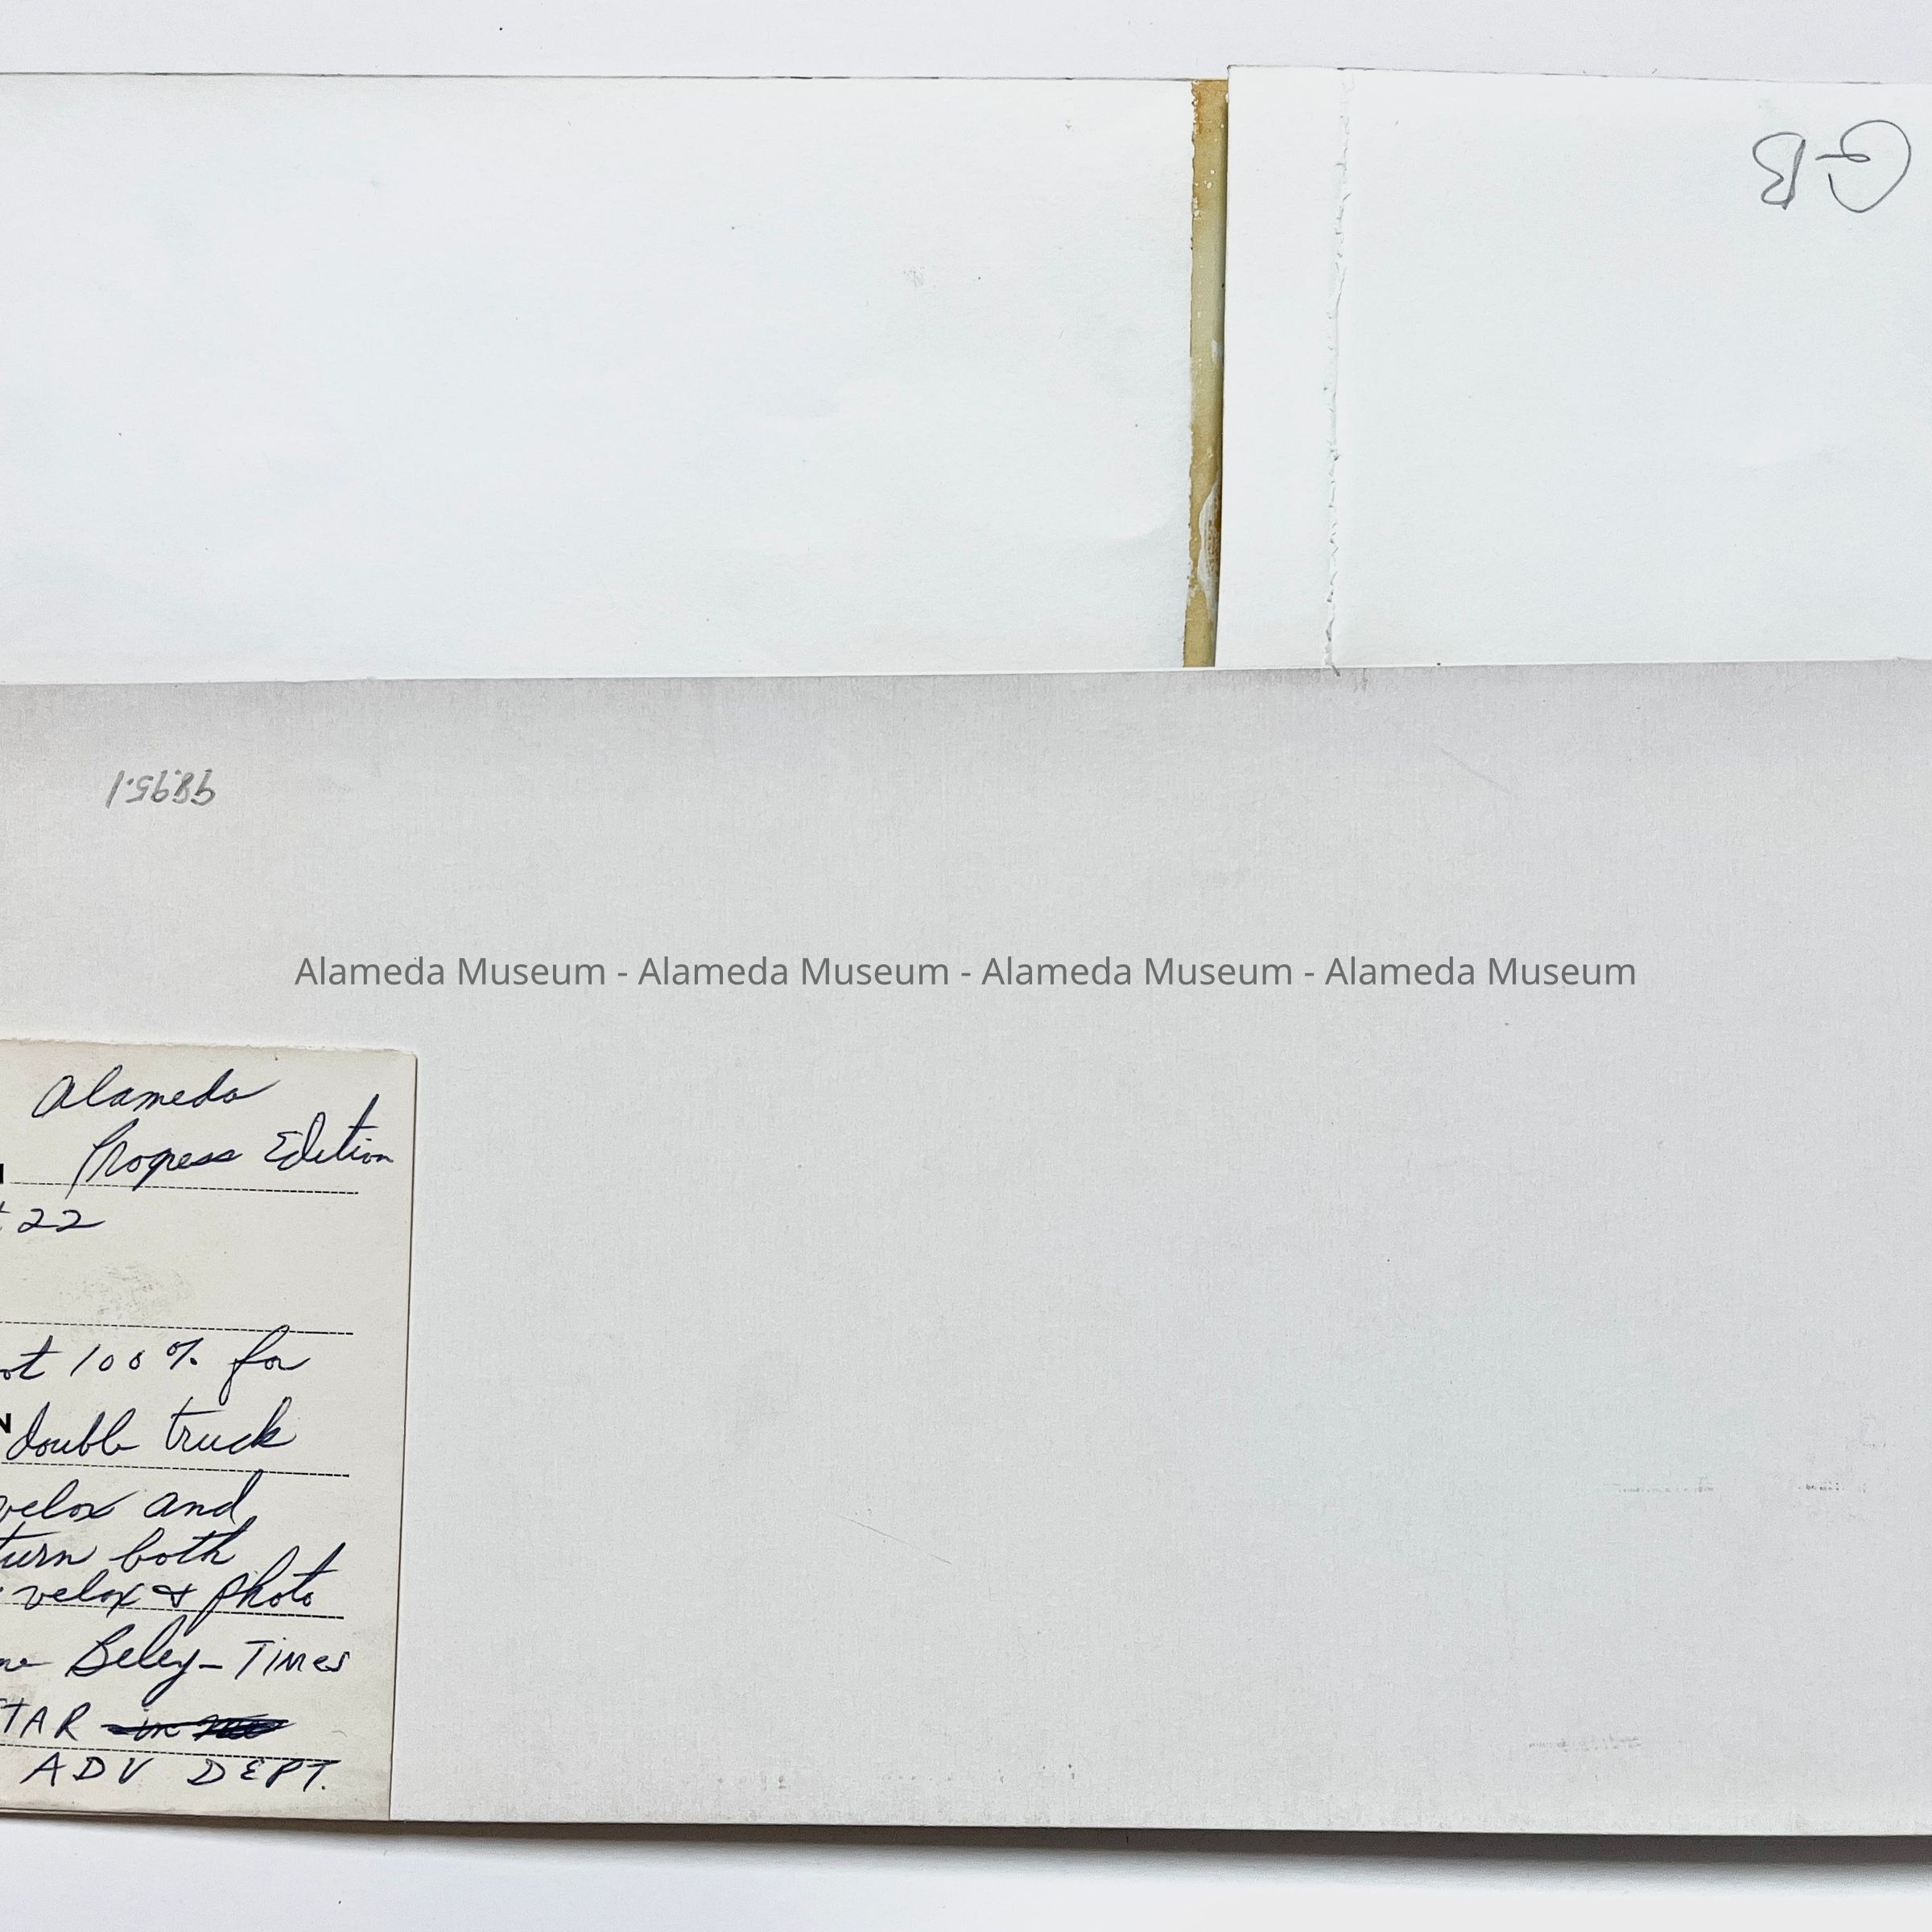 GB
98.95.1
Alameda Museum - Alameda Museum - Alameda Museum - Alameda Museum
Alameda
Progress Edition
22
100% for
N double truck
velox and
turn both
velox & photo
Beley - Times
TAR
ADV DEPT.